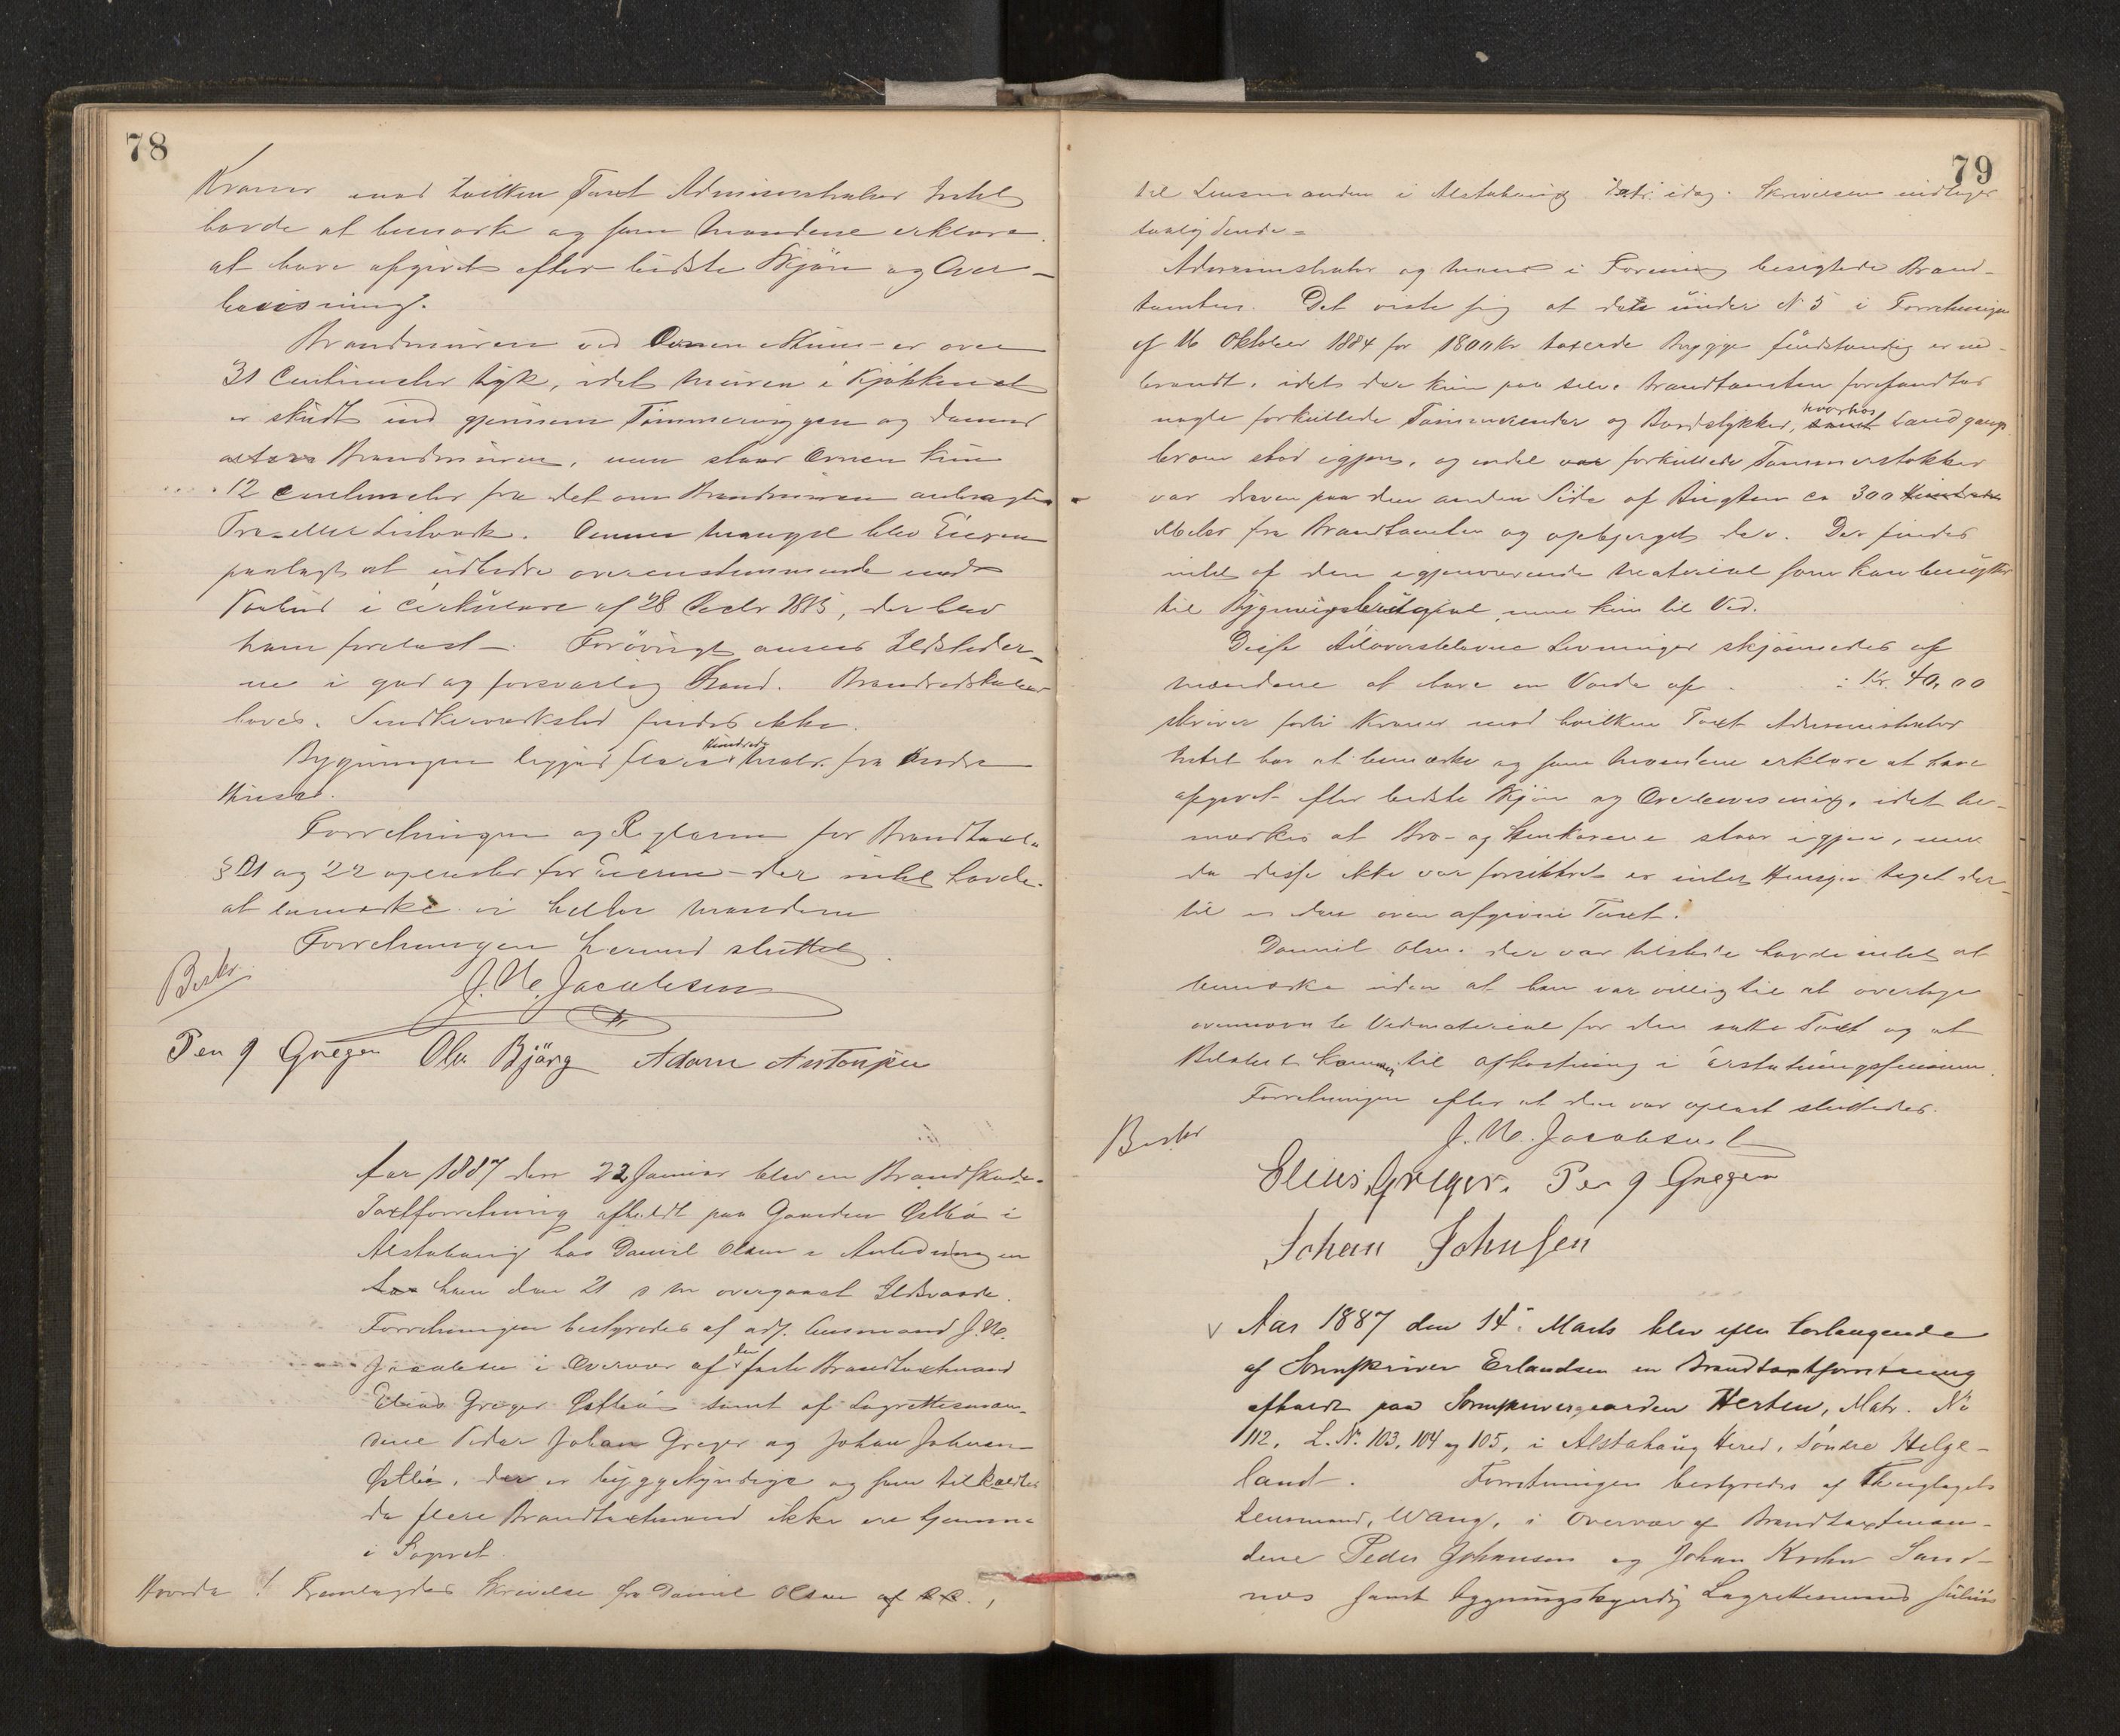 78
Kroner mod hvilken Taxt Administrator Intet
havde at bemærke og som Mændene erklære
at have afgivet efter bedste Skjøn og Over-
bevisning.
Brandmuren ved Ovnen i Stuen er over
31 Centimeter tyk, idet Muren i Kjøkkenet
er skudt ind gjennem Tømmervæggen og danner
Brandmuren, men staar Ovnen kun
12 Centimeter fra det om Brandmuren anbragte
Træ- eller Listværk. Denne Mangel blev Eieren
paalagt at udbedre overensstemmende med
Paabud i Cirkulære af 28 Decbr 1815, der blev
ham forelæst. Forøvrigt ansees Ildsteder-
ne i god og forsvarlig Stand. Brandredskaber
haves. Snedkerværksted findes ikke.
Bygningen ligger flere Hundrede Meter fra andre
Huse.
Forretningen og Reglerne for Brandtaxt
§ 21 og 22 oplæstes for Eieren – der intet havde
at bemærke ei heller Mændene
Forretningen hermed sluttet.
Beskr
J. N. Jacobsen
Per J Greger Ole Bjørg Adam Antonsen
Aar 1887 den 22 Januar blev en Brandskade-
Taxtforretning afholdt paa Gaarden Østbø i
Alstahaug hos Daniel Olsen i Anledning en
ham den 21 d M overgaaet Ildsvaade.
Forretningen bestyredes af adj. Lensmand J. N.
Jacobsen i Overvær af den faste Brandtaxtmand
Elias Greger Østbø samt af Lagrettesmæn-
dene Peder Johan Greger og Johan Johnsen
Østbø, der er byggekyndige og som tilkaldtes
da flere Brandtaxtmænd ikke ere hjemme
i Sognet.
Hvorda! Fremlagdes Skrivelse fra Daniel Olsen
79
til Lensmanden i Alstahaug datr. idag. Skrivelsen indtages
saalydende =
Administrator og Mænd i Forening besigtede Brand-
tomten. Det viste sig at det under No 5 i Forretningen
af 16 Oktober 1884 for 1800 Kr taxerede Brygge fuldstændig er ned-
brændt, idet der kun paa selve Brandtomten forefandtes
nogle forkullede Tømmerender og Bordstykker, hvorhos Landgangs-
broen stod igjen, og endel forkullede Tømmerstokker
var dreven paa den anden Side af Bugten ca 300
Meter fra Brandtomten og opbjerget der. Der findes
intet af den igjenværende Material som kan benyttes
til Bygningsbrug men kun til Ved.
Disse tiloversblevne Levninger skjønnedes af
Mændene at have en Værdi af : Kr. 40,00
skriver førti Kroner mod hvilken Taxt Administrator
Intet har at bemærke og som Mændene erklære at have
afgivet efter bedste Skjøn og Overbevisning, idet be-
mærkes at Bro- og Stenkarene staar igjen, men
da disse ikke var forsikkret er intet Hensyn taget der-
til i den oven afgivne Taxt.
Daniel Olsen der var tilstede havde intet at
bemærke uden at han var villig til at overtage
ovennævnte Vedmaterial for den satte Taxt og at
Beløbet kommer til afkortning i Erstatningssummen.
Forretningen efter at den var oplæst sluttedes.
Beskr
J. N. Jacobsen
Elias Greger. Per J Greger
Johan Johnsen
V Aar 1887 den 14de Marts blev efter Forlangende
af Sorenskriver Erlandsen en Brandtaxtforretning
afholdt paa Sorenskrivergaarden Herten, Matr. No
112, L. No. 103, 104 og 105, i Alstahaug Hered, Søndre Helge-
land. Forretningen bestyredes af Thinglagets
Lensmand, Wang, i Overvær af Brandtaxtmæn-
dene Peder Johansen og Johan Krohn Sand-
nes samt bygningskyndig Lagrettesmand Julius